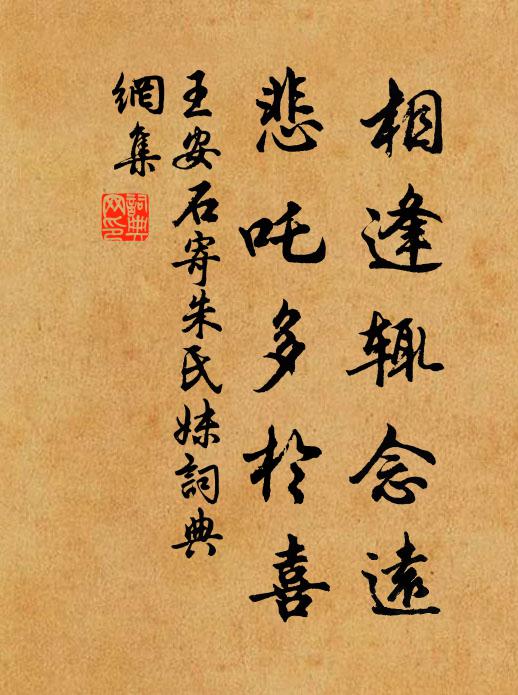 相逢辄念遠
悲吒多於喜
王安石寄朱氏妹詞典
網集
詞典網印